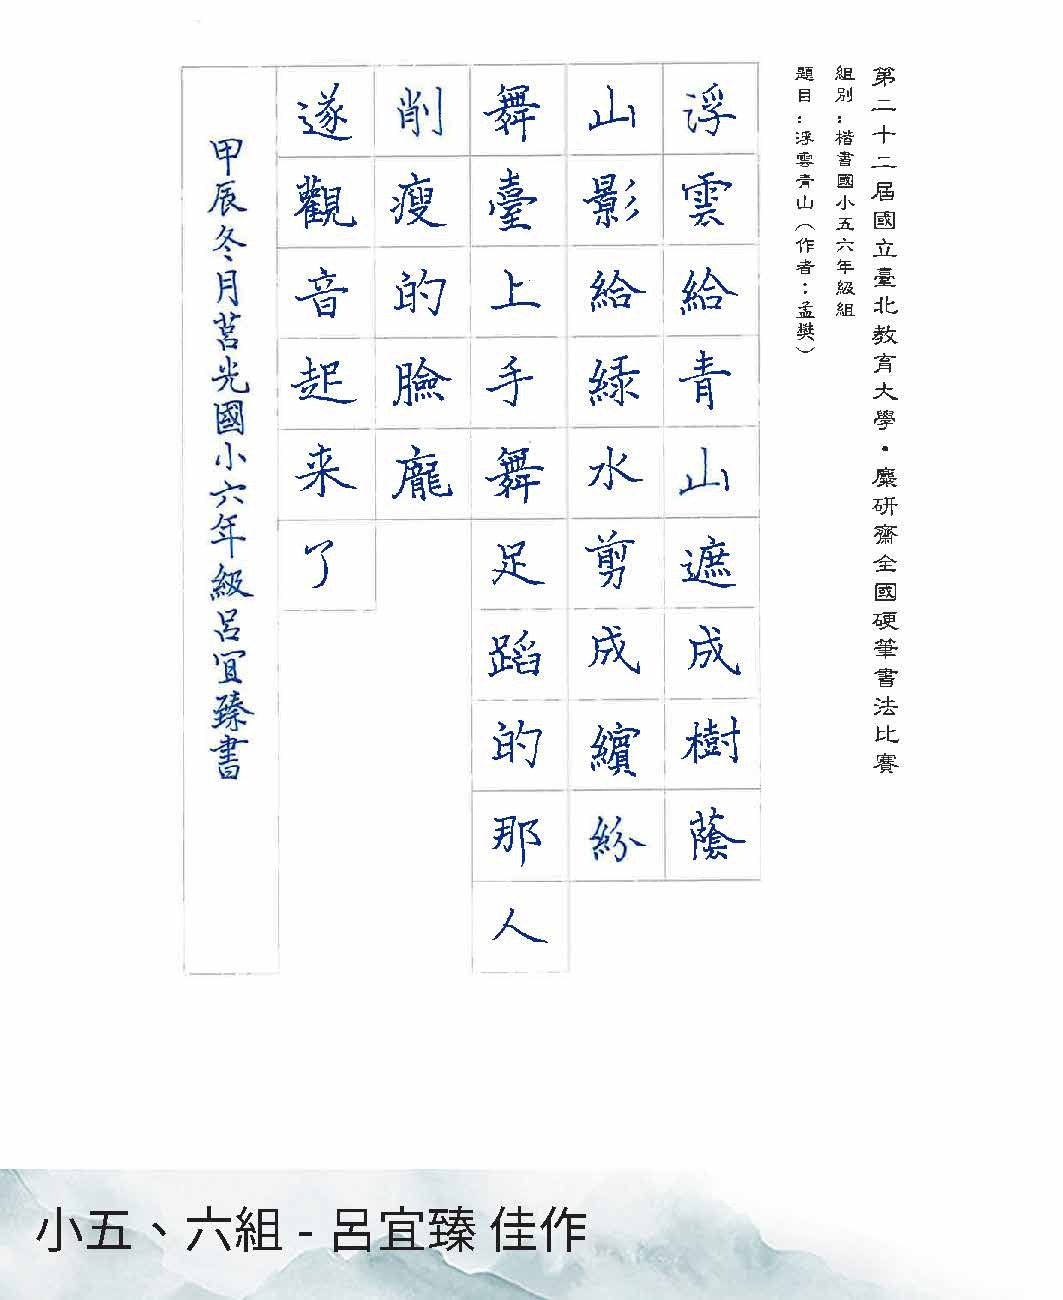 第二十二屆國立臺北教育大學・麋研齋全國硬筆書法比賽
組別：楷書國小五六年級組
題目：浮雲青山（作者：孟樊）
浮雲給青山遮成樹蔭
山影給綠水剪成繽紛
舞臺上手舞足蹈的那人
削瘦的臉龐
遂觀音起来了
甲辰冬月莒光國小六年級呂宜臻書
小五、六組 - 呂宜臻 佳作